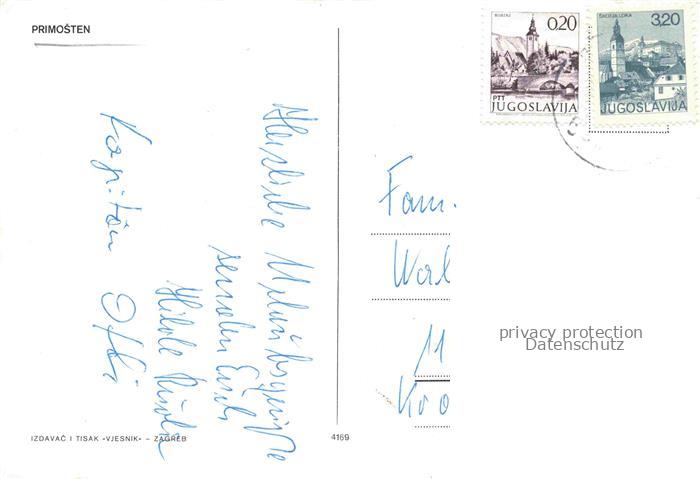 PRIMOŠTEN
BOHINJ
0.20
PTT
JUGOSLAVIJA
ŠKOFJA LOKA
3,20
JUGOSLAVIJA
Herzliche Urlaubsgrüße
senden Euch
Kapitän
Fam.
11
privacy protection
Datenschutz
IZDAVAČ I TISAK «VJESNIK» – ZAGREB
4169